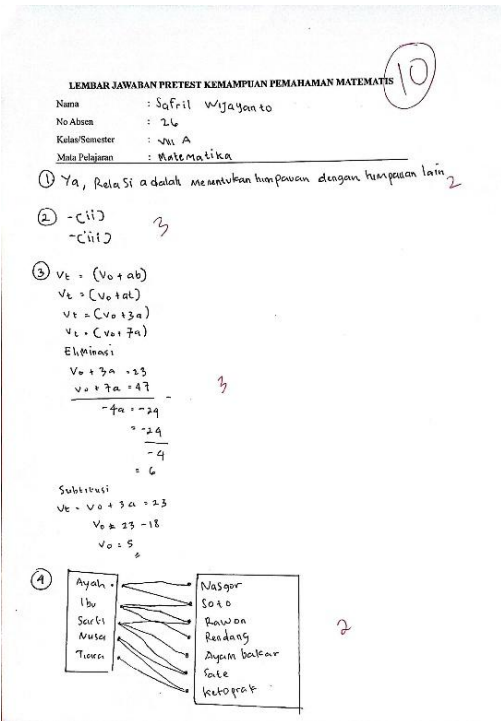 10
LEMBAR JAWABAN PRETEST KEMAMPUAN PEMAHAMAN MATEMATIS
Nama : Safril Wijayanto
No Absen : 26
Kelas/Semester : VIII A
Mata Pelajaran : Matematika
① Ya, Relasi adalah menentukan himpauan dengan himpauan lain 2
② -(ii)
-(iii) 3
③ Vt = (Vo + ab)
Vt = (Vo + at)
Vt = (Vo + 3a)
Vt = (Vo + 7a)
Eliminasi
Vo + 3a = 23
Vo + 7a = 47 -
3
-4a = -24
= -24
-4
= 6
Subtitusi
Vt = Vo + 3a = 23
Vo = 23 - 18
Vo = 5
④ Ayah Nasgor
Ibu Soto
Sarti Rawon
Nusa Rendang
Tiara Ayam bakar
Sate
ketoprak
2